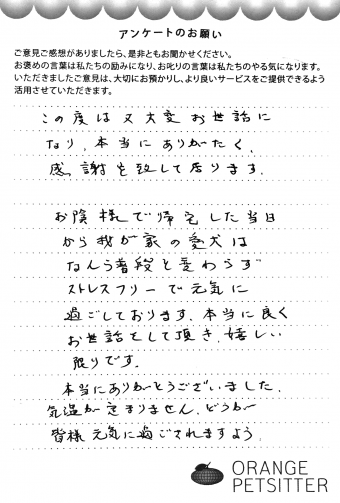 アンケートのお願い
ご意見ご感想がありましたら、是非ともお聞かせください。
お褒めの言葉は私たちの励みになり、お叱りの言葉は私たちのやる気になります。
いただきましたご意見は、大切にお預かりし、より良いサービスをご提供できるよう
活用させていただきます。
この度は又大変お世話に
なり、本当にありがたく、
感謝を致して居ります。
お陰様で帰宅した当日
から我が家の愛犬は
なんら普段と変わらず
ストレスフリーで元気に
過ごしております。本当に良く
お世話をして頂き、嬉しい
限りです。
本当にありがとうございました。
気温が定まりません、どうか
皆様元気に過ごされますよう。
ORANGE
PETSITTER